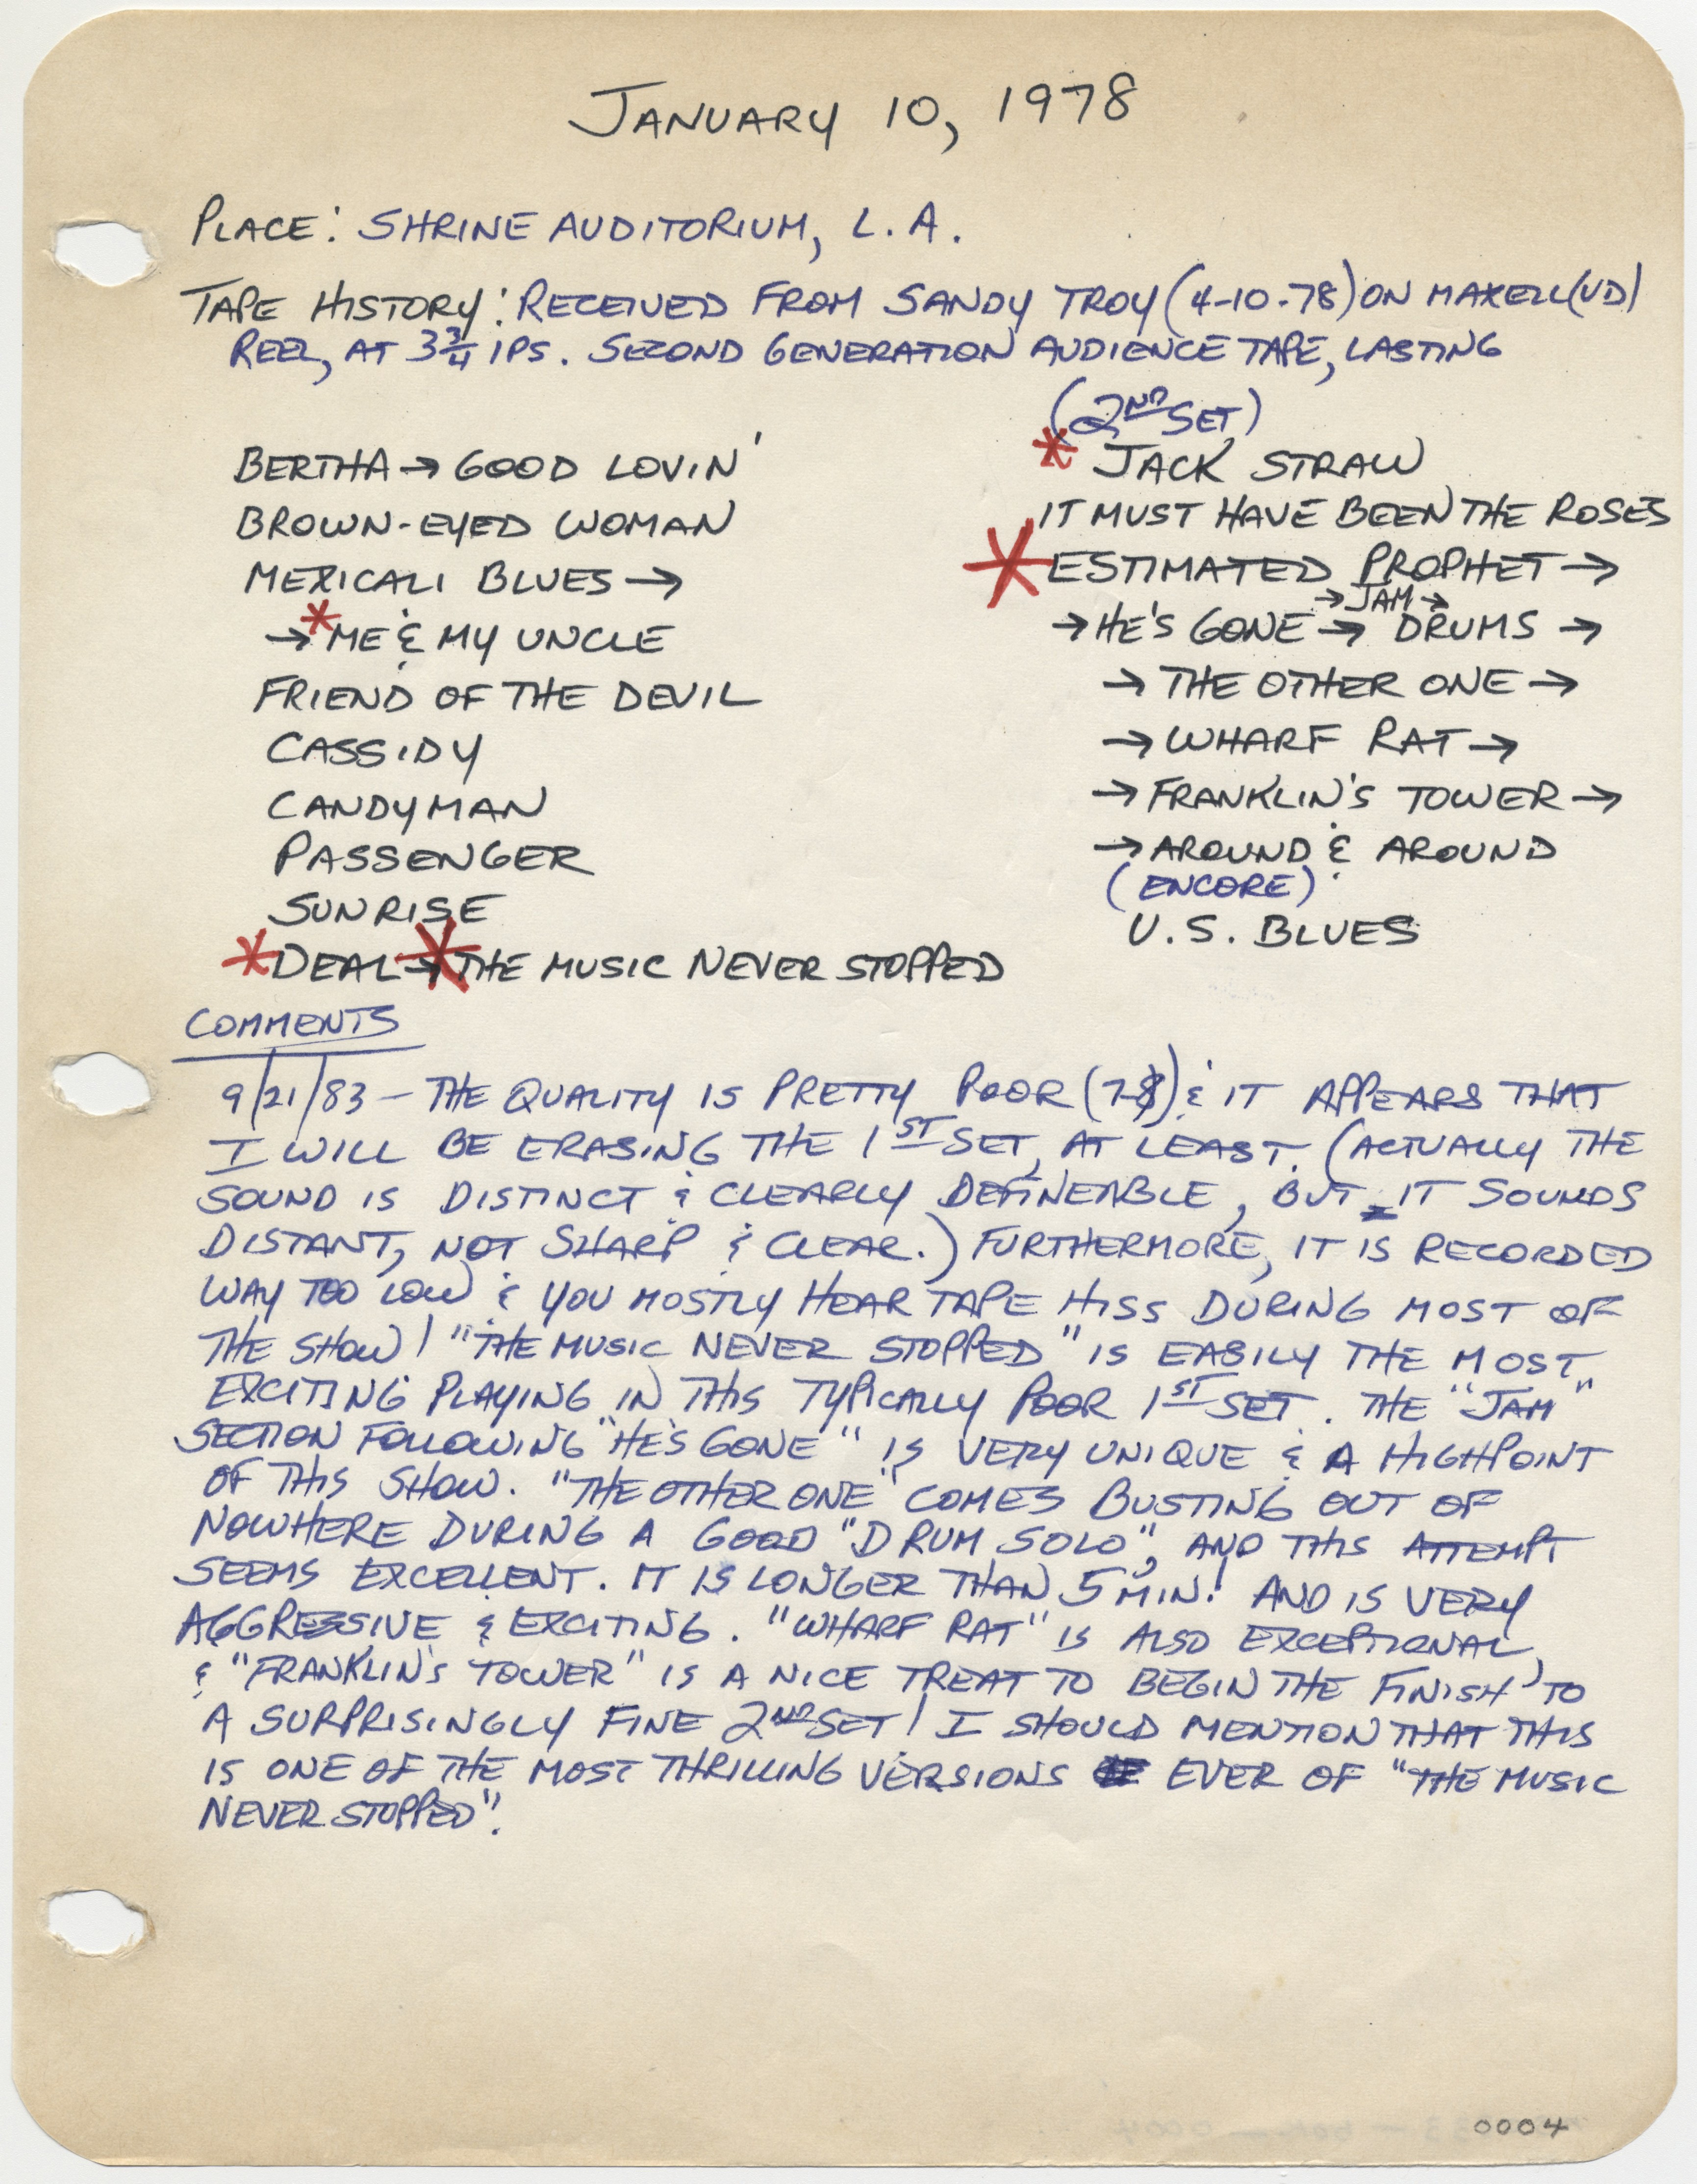 JANUARY 10, 1978
PLACE: SHRINE AUDITORIUM, L.A.
TAPE HISTORY: RECEIVED FROM SANDY TROY (4-10-78) ON MAXELL (UD)
REEL, AT 3 3/4 IPS. SECOND GENERATION AUDIENCE TAPE, LASTING
BERTHA → GOOD LOVIN'
BROWN-EYED WOMAN
MEXICALI BLUES →
→ * ME & MY UNCLE
FRIEND OF THE DEVIL
CASSIDY
CANDYMAN
PASSENGER
SUNRISE
* DEAL → * THE MUSIC NEVER STOPPED
(2ND SET)
* JACK STRAW
IT MUST HAVE BEEN THE ROSES
* ESTIMATED PROPHET →
→ JAM →
→ HE'S GONE → DRUMS →
→ THE OTHER ONE →
→ WHARF RAT →
→ FRANKLIN'S TOWER →
→ AROUND & AROUND
(ENCORE)
U.S. BLUES
COMMENTS
9/21/83 - THE QUALITY IS PRETTY POOR & IT APPEARS THAT
I WILL BE ERASING THE 1ST SET, AT LEAST. (ACTUALLY THE
SOUND IS DISTINCT & CLEARLY DEFINEABLE, BUT IT SOUNDS
DISTANT, NOT SHARP & CLEAR.) FURTHERMORE, IT IS RECORDED
WAY TOO LOW & YOU MOSTLY HEAR TAPE HISS DURING MOST OF
THE SHOW! "THE MUSIC NEVER STOPPED" IS EASILY THE MOST
EXCITING PLAYING IN THIS TYPICALLY POOR 1ST SET. THE "JAM"
SECTION FOLLOWING "HE'S GONE" IS VERY UNIQUE & A HIGHPOINT
OF THIS SHOW. "THE OTHER ONE" COMES BUSTING OUT OF
NOWHERE DURING A GOOD "DRUM SOLO", AND THIS ATTEMPT
SEEMS EXCELLENT. IT IS LONGER THAN 5 MIN! AND IS VERY
AGGRESSIVE & EXCITING. "WHARF RAT" IS ALSO EXCEPTIONAL,
& "FRANKLIN'S TOWER" IS A NICE TREAT TO BEGIN THE FINISH TO
A SURPRISINGLY FINE 2ND SET! I SHOULD MENTION THAT THIS
IS ONE OF THE MOST THRILLING VERSIONS EVER OF "THE MUSIC
NEVER STOPPED".
0004